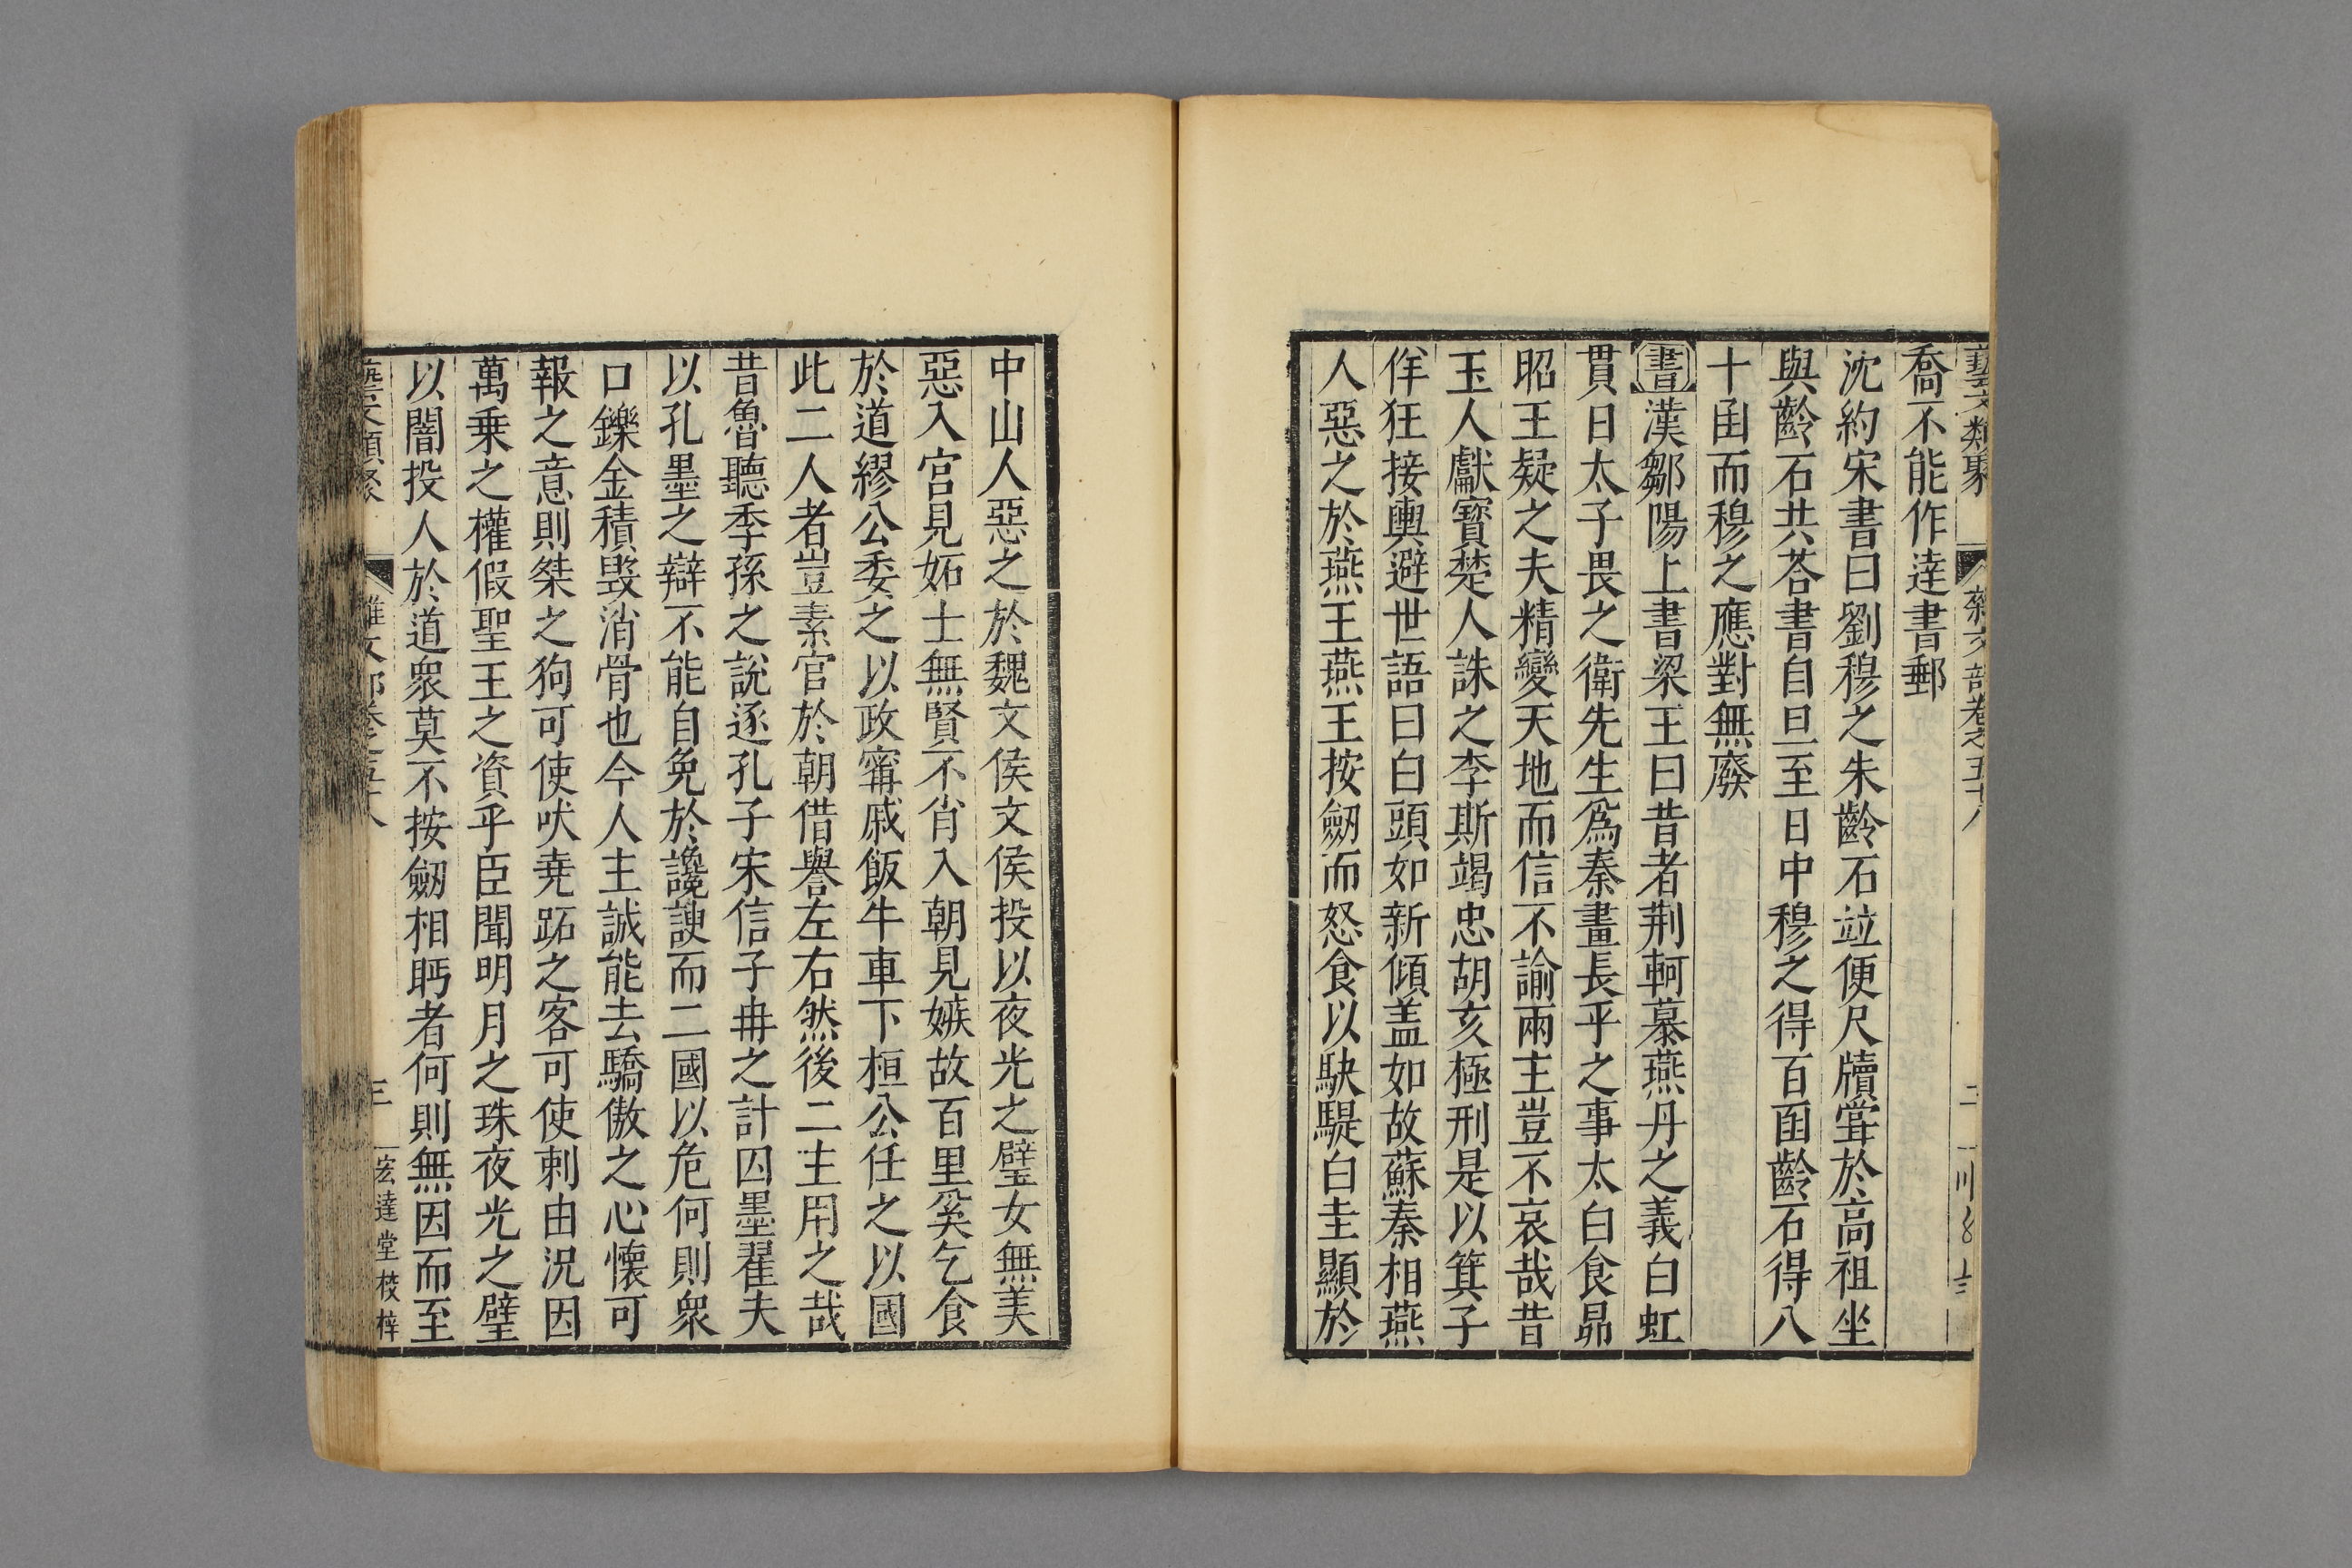 藝文類聚 雜文部卷之五十八 二
喬不能作達書郵
沈約宋書曰劉穆之朱齡石竝便尺牘甞於高祖坐
與齡石共荅書自旦至日中穆之得百函齡石得八
十函而穆之應對無廢
書漢鄒陽上書梁王曰昔者荆軻慕燕丹之義白虹
貫日太子畏之衛先生爲秦畫長平之事太白食昴
昭王疑之夫精變天地而信不諭兩主豈不哀哉昔
玉人獻寳楚人誅之李斯竭忠胡亥極刑是以箕子
佯狂接輿避世語曰白頭如新傾盖如故蘇秦相燕
人惡之於燕王燕王按劒而怒食以駃騠白圭顯於
中山人惡之於魏文侯文侯投以夜光之璧女無美
惡入宫見妬士無賢不肖入朝見嫉故百里奚乞食
於道繆公委之以政甯戚飯牛車下桓公任之以國
此二人者豈素官於朝借譽左右然後二主用之哉
昔魯聽季孫之說逐孔子宋信子冉之計囚墨翟夫
以孔墨之辯不能自免於讒諛而二國以危何則衆
口鑠金積毀消骨也今人主誠能去驕傲之心懷可
報之意則桀之狗可使吠堯跖之客可使刺由況因
萬乗之權假聖王之資乎臣聞明月之珠夜光之璧
以闇投人於道衆莫不按劒相眄者何則無因而至
藝文類聚 雜文部卷之五十八 三 宏達堂校梓